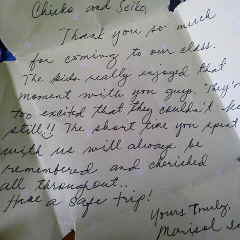 Chicko and Seiko,
Thank you so much
for coming to our class.
The kids really enjoyed that
moment with you guys. They'r
too excited that they couldn't
still!! The short time you spent
with us will always be
remembered and cherished
all throughout..
Have a safe trip!
Yours Truly,
Marisol